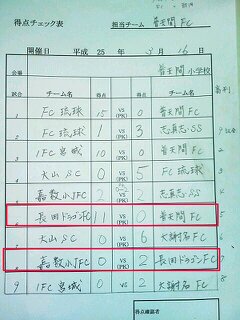 得点チェック表
担当チーム 普天間 FC
開催日 平成 25 年 3月 16日
会場 普天間小学校
試合 チーム名 得点 VS(PK) 得点 チーム名
1 FC琉球 15 VS(PK) 0 普天間FC
2 FC琉球 1 VS(PK) 3 志真志SS
3 1FC宮城 10 VS(PK) 0 普天間FC
4 大山SC 0 VS(PK) 5 FC琉球
5 嘉数小JFC 2 VS(PK) 2 志真志SS
6 長田ドラゴンFC 11 VS(PK) 0 普天間FC
7 大山SC 0 VS(PK) 6 大謝名FC
8 嘉数小JFC 0 VS(PK) 2 長田ドラゴンFC
9 1FC宮城 0 VS(PK) 2 大謝名FC
得点確認者